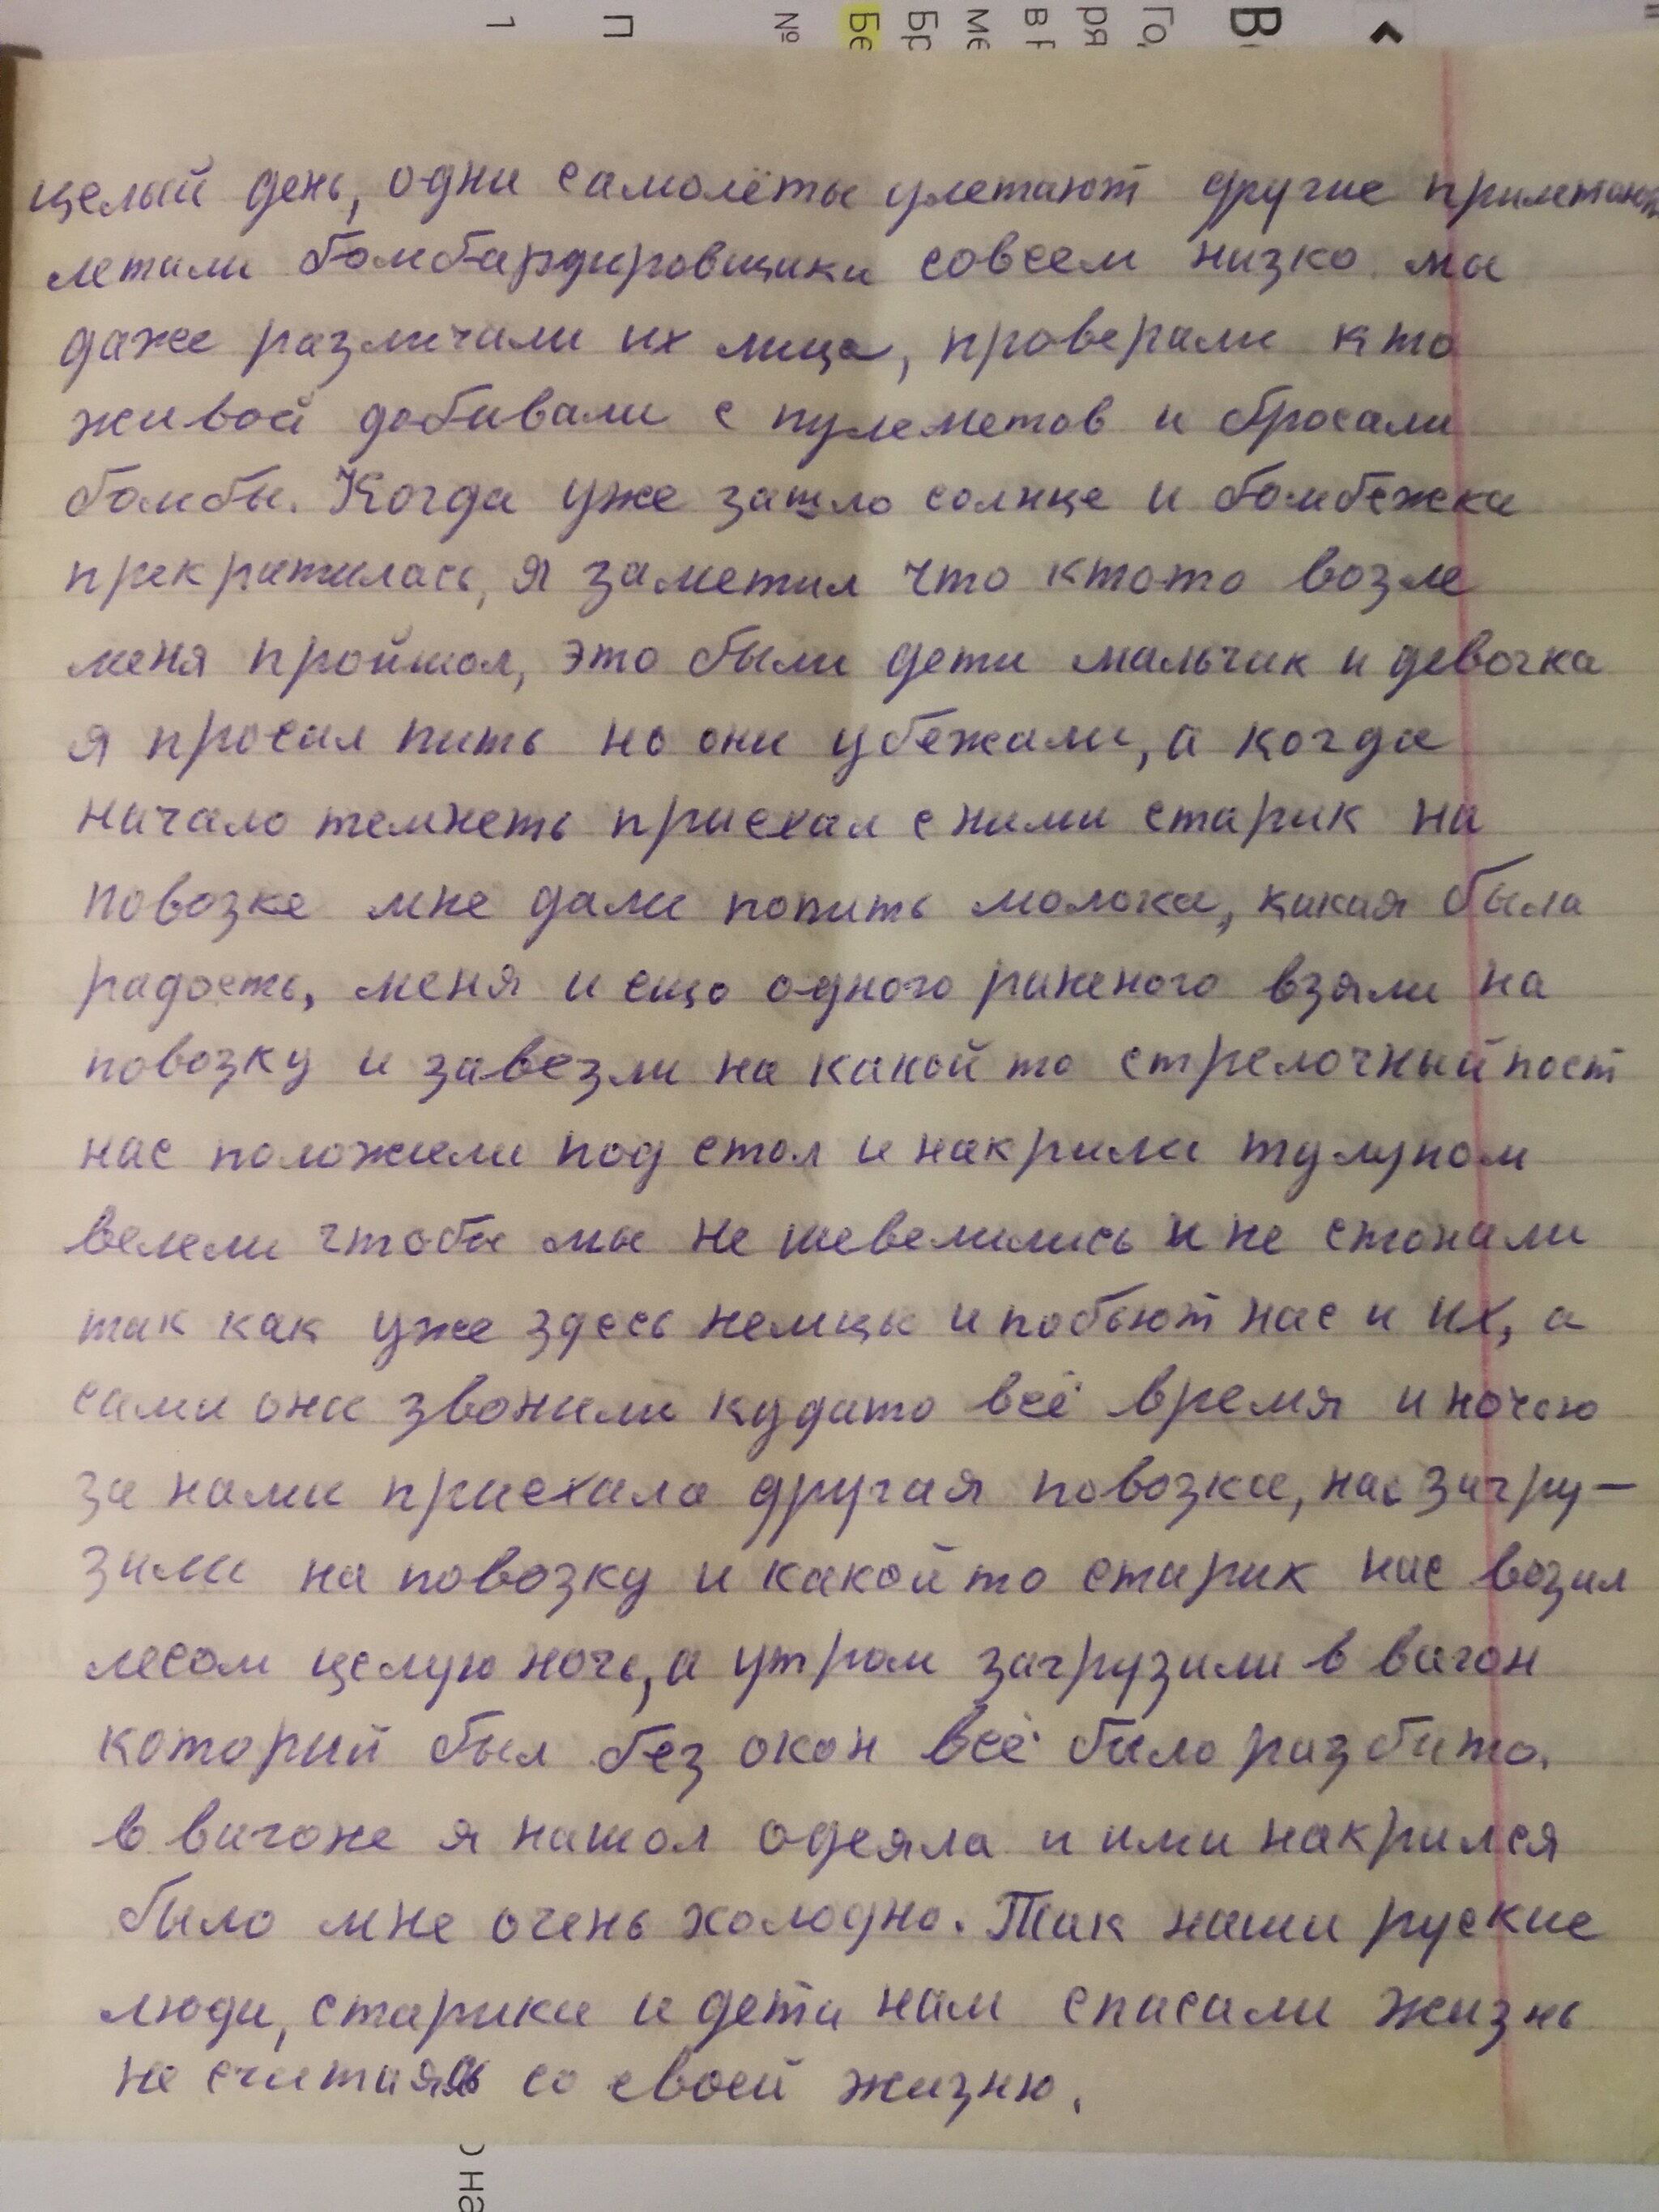 1
П
№
Бе
Бр
ме
в г
ря
Го,
В
целый день, одни самолёты улетают другие прилетают
летали бомбардировщики совсем низко мы
даже различали их лица, проверали кто
живой добивали с пулеметов и бросали
бомбы. Когда уже зашло солнце и бомбёжка
прекратилась, я заметил что ктото возле
меня пройшол, это были дети мальчик и девочка
я просил пить но они убежали, а когда
начало темнеть приехал с ними старик на
повозке мне дали попить молока, какая была
радость, меня и ещо одного раненого взяли на
повозку и завезли на какой то стрелочный пост
нас положили под стол и накрили тулупом
велели чтобы мы не шевелились и не стонали
так как уже здесь немцы и побьют нас и их, а
сами они звонили кудато всё время и ночью
за нами приехала другая повозка, нас загру-
зили на повозку и какой то старик нас возил
лесом целую ночь, а утром загрузили в вагон
которий был без окон всё било разбито.
в вагоне я нашол одеяла и ими накрился
было мне очень холодно. Так наши руские
люди, старики и дети нам спасали жизнь
не считаясь со своей жизню.
на